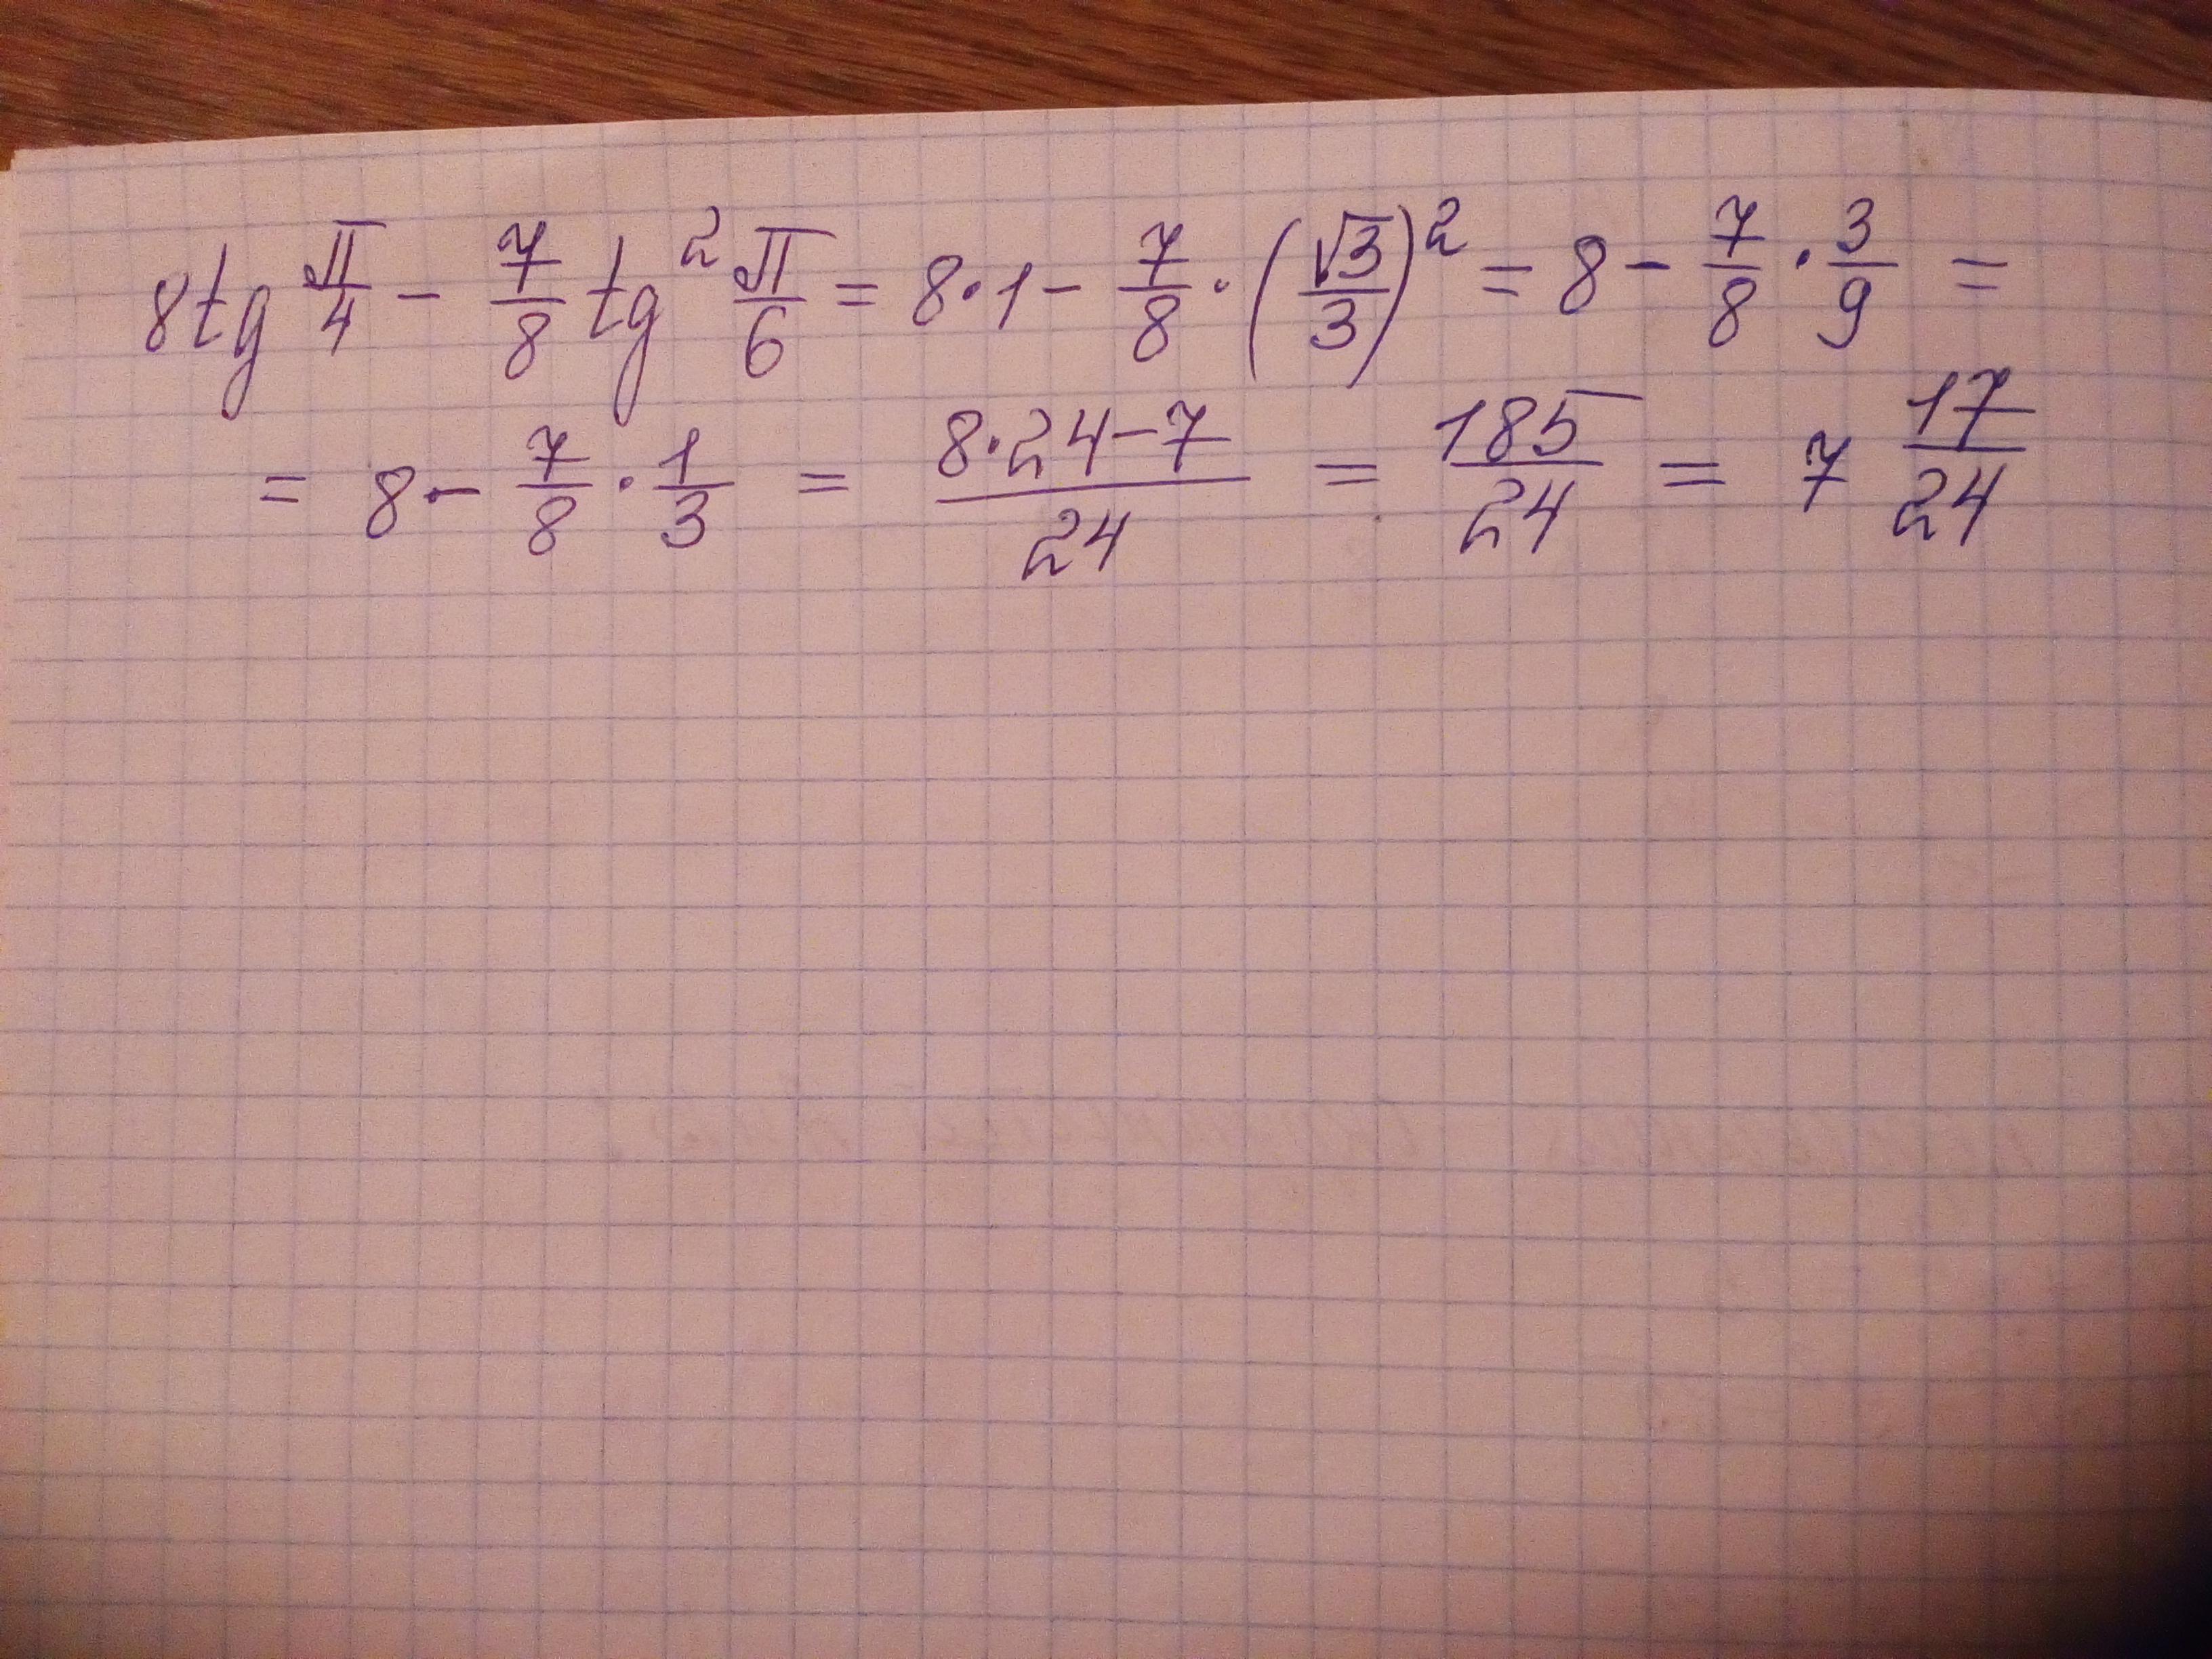 8tg π/4 − 7/8 tg² π/6 = 8·1 − 7/8 · (√3/3)² = 8 − 7/8 · 3/9 =
= 8 − 7/8 · 1/3 = (8·24−7)/24 = 185/24 = 7 17/24